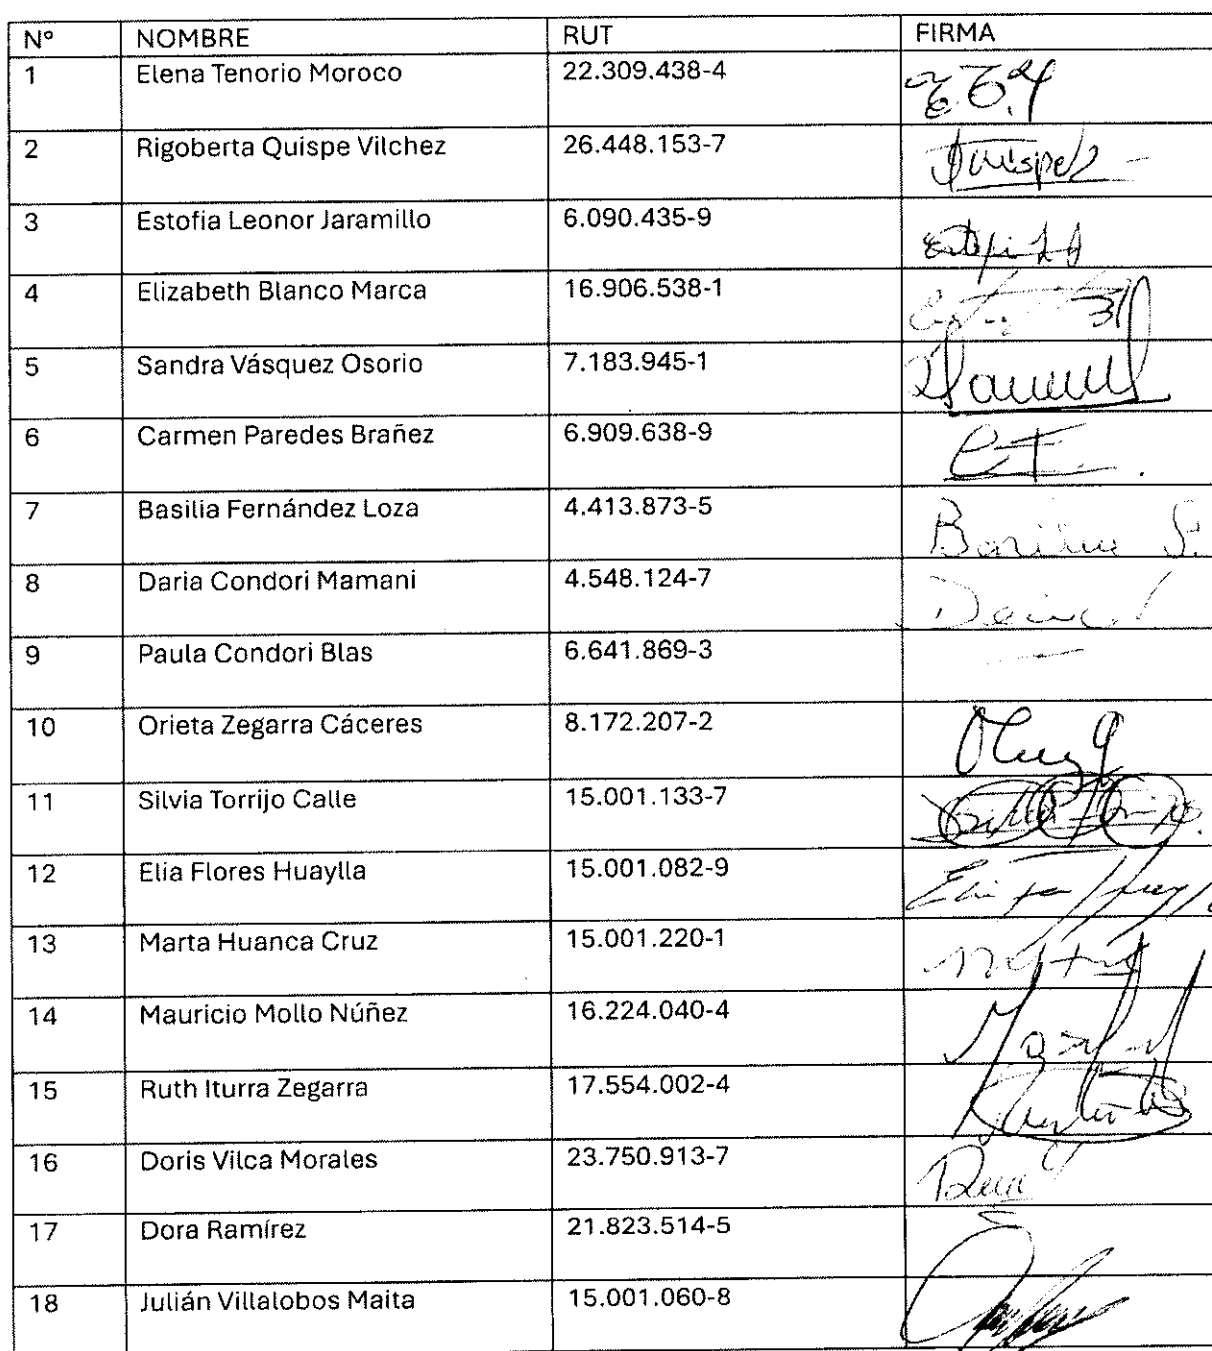 N° NOMBRE RUT FIRMA
1 Elena Tenorio Moroco 22.309.438-4 E.T.M
2 Rigoberta Quispe Vilchez 26.448.153-7
3 Estofia Leonor Jaramillo 6.090.435-9
4 Elizabeth Blanco Marca 16.906.538-1
5 Sandra Vásquez Osorio 7.183.945-1
6 Carmen Paredes Brañez 6.909.638-9
7 Basilia Fernández Loza 4.413.873-5
8 Daria Condori Mamani 4.548.124-7
9 Paula Condori Blas 6.641.869-3
10 Orieta Zegarra Cáceres 8.172.207-2
11 Silvia Torrijo Calle 15.001.133-7
12 Elia Flores Huaylla 15.001.082-9
13 Marta Huanca Cruz 15.001.220-1
14 Mauricio Mollo Núñez 16.224.040-4
15 Ruth Iturra Zegarra 17.554.002-4
16 Doris Vilca Morales 23.750.913-7
17 Dora Ramírez 21.823.514-5
18 Julián Villalobos Maita 15.001.060-8